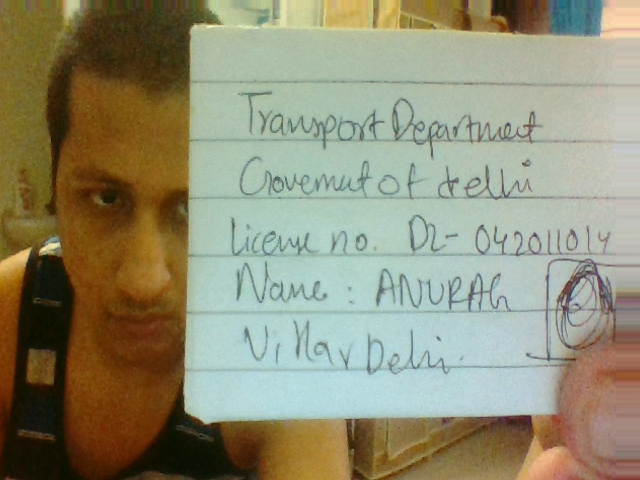 Transport Department
Govermut of delhi
License no. DL- 042011014
Name: ANURAG
Vihar Delhi.